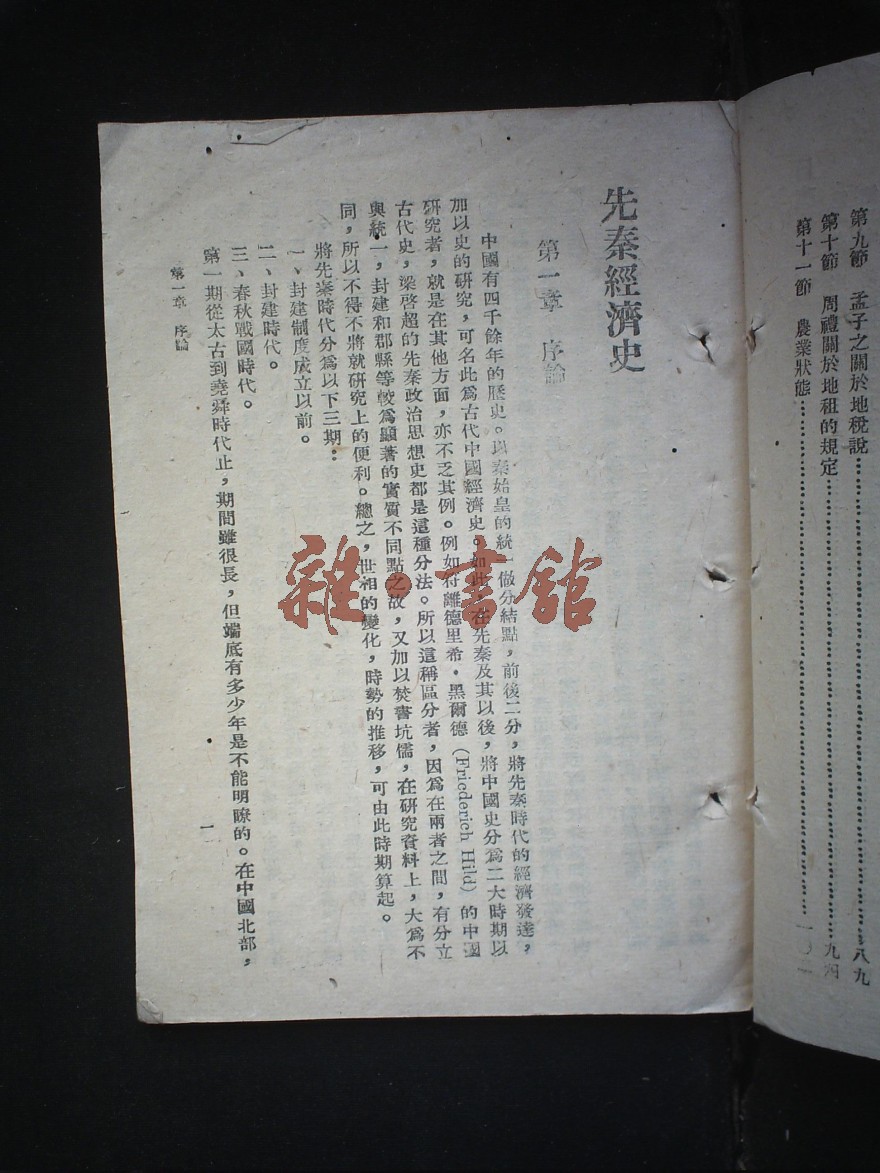 第九節　孟子之關於地稅說……………………八九
第十節　周禮關於地租的規定……………………九四
第十一節　農業狀態……………………一〇二
先秦經濟史
第一章　序論
中國有四千餘年的歷史。以秦始皇的統一做分結點，前後二分，將先秦時代的經濟發達，
加以史的研究，可名此爲古代中國經濟史。如此，在先秦及其以後，將中國史分爲二大時期以
研究者，就是在其他方面，亦不乏其例。例如符離德里希·黑爾德（Friederich Hild）的中國
古代史，梁啓超的先秦政治思想史都是這種分法。所以這稱區分者，因爲在兩者之間，有分立
與統一，封建和郡縣等較爲顯著的實質不同點之故，又加以焚書坑儒，在研究資料上，大爲不
同，所以不得不將就研究上的便利。總之，世相的變化，時勢的推移，可由此時期算起。
將先秦時代分爲以下三期：
一、封建制度成立以前。
二、封建時代。
三、春秋戰國時代。
第一期從太古到堯舜時代止，期間雖很長，但端底有多少年是不能明瞭的。在中國北部，
第一章　序論
一
雜·書館